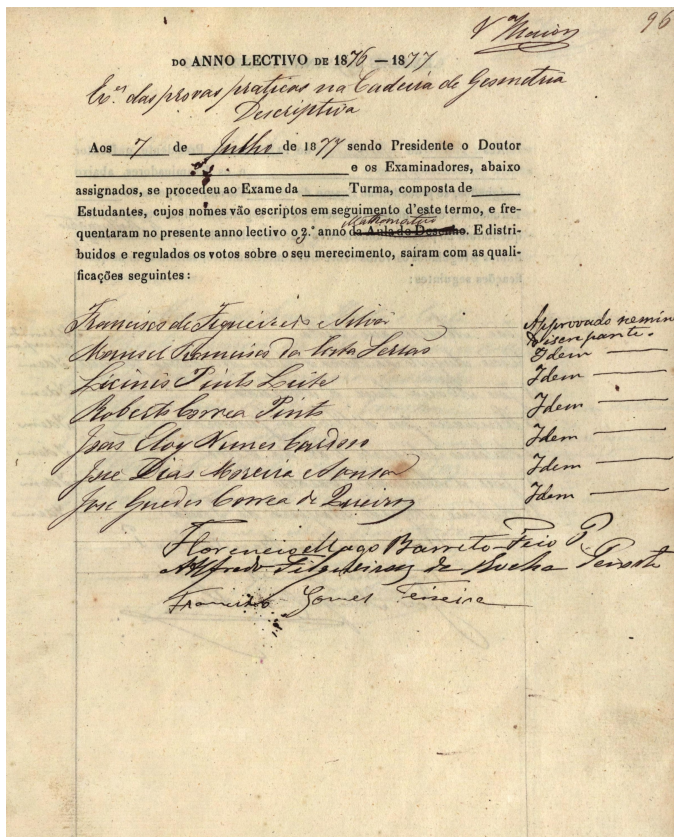 96
DO ANNO LECTIVO DE 1876 — 1877
das provas praticas na Cadeira de Geometria
Descriptiva
Aos 7 de Julho de 1877 sendo Presidente o Doutor
e os Examinadores, abaixo
assignados, se procedeu ao Exame da Turma, composta de
Estudantes, cujos nomes vão escriptos em seguimento d'este termo, e fre-
Mathematico
quentaram no presente anno lectivo o 3.º anno da Aula de Desenho. E distri-
buidos e regulados os votos sobre o seu merecimento, sairam com as quali-
ficações seguintes:
Francisco de Figueiredo e Silva Approvado nemine
discrepante.
Manuel Francisco da Costa Serrão Idem
Licinio Pinto Leite Idem
Roberto Correa Pinto Idem
João Eloy Nunes Cardoso Idem
José Dias Moreira e Sousa Idem
José Guedes Correa de Queiroz Idem
Florencio Mago Barreto Feio P
Alfredo Filgueiras da Rocha Peixoto
Francisco Gomes Teixeira